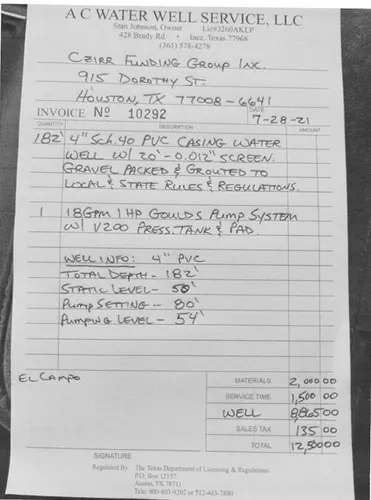 A C WATER WELL SERVICE, LLC
Stan Johnson, Owner Lic#3260AKLP
428 Brady Rd. • Inez, Texas 77968
(361) 578-4278
CZIRR FUNDING GROUP INC.
915 DOROTHY ST.
HOUSTON, TX 77008-6641
INVOICE Nº 10292 DATE 7-28-21
QUANTITY DESCRIPTION AMOUNT
182' 4" Sch.40 PVC CASING WATER
WELL W/ 20'-0.012" SCREEN.
GRAVEL PACKED & GROUTED TO
LOCAL & STATE RULES & REGULATIONS.
1 18GPM 1HP GOULDS PUMP SYSTEM
W/ V200 PRESS.TANK & PAD.
WELL INFO: 4" PVC
TOTAL DEPTH - 182'
STATIC LEVEL - 50'
PUMP SETTING -- 80'
PUMPING LEVEL - 54'
EL CAMPO
MATERIALS 2,000 00
SERVICE TIME 1,500 00
WELL 8,865 00
SALES TAX 135 00
TOTAL 12,500 00
SIGNATURE
Regulated By: The Texas Department of Licensing & Regulations
P.O. Box 12157
Austin, TX 78711
Tele: 800-803-9202 or 512-463-7880